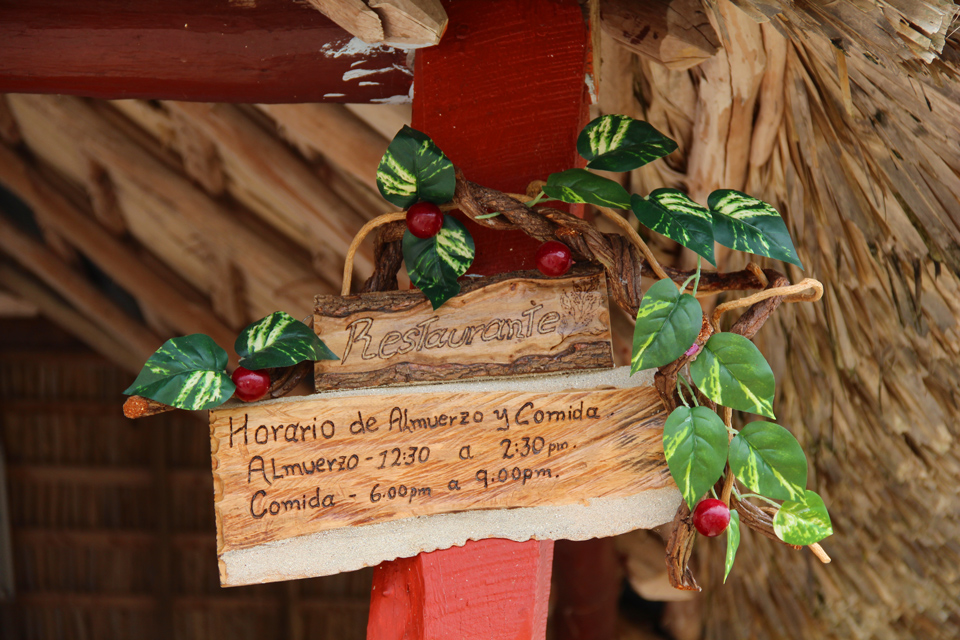 Restaurante
Horario de Almuerzo y Comida.
Almuerzo - 12:30 a 2:30 pm.
Comida - 6.00pm a 9.00pm.